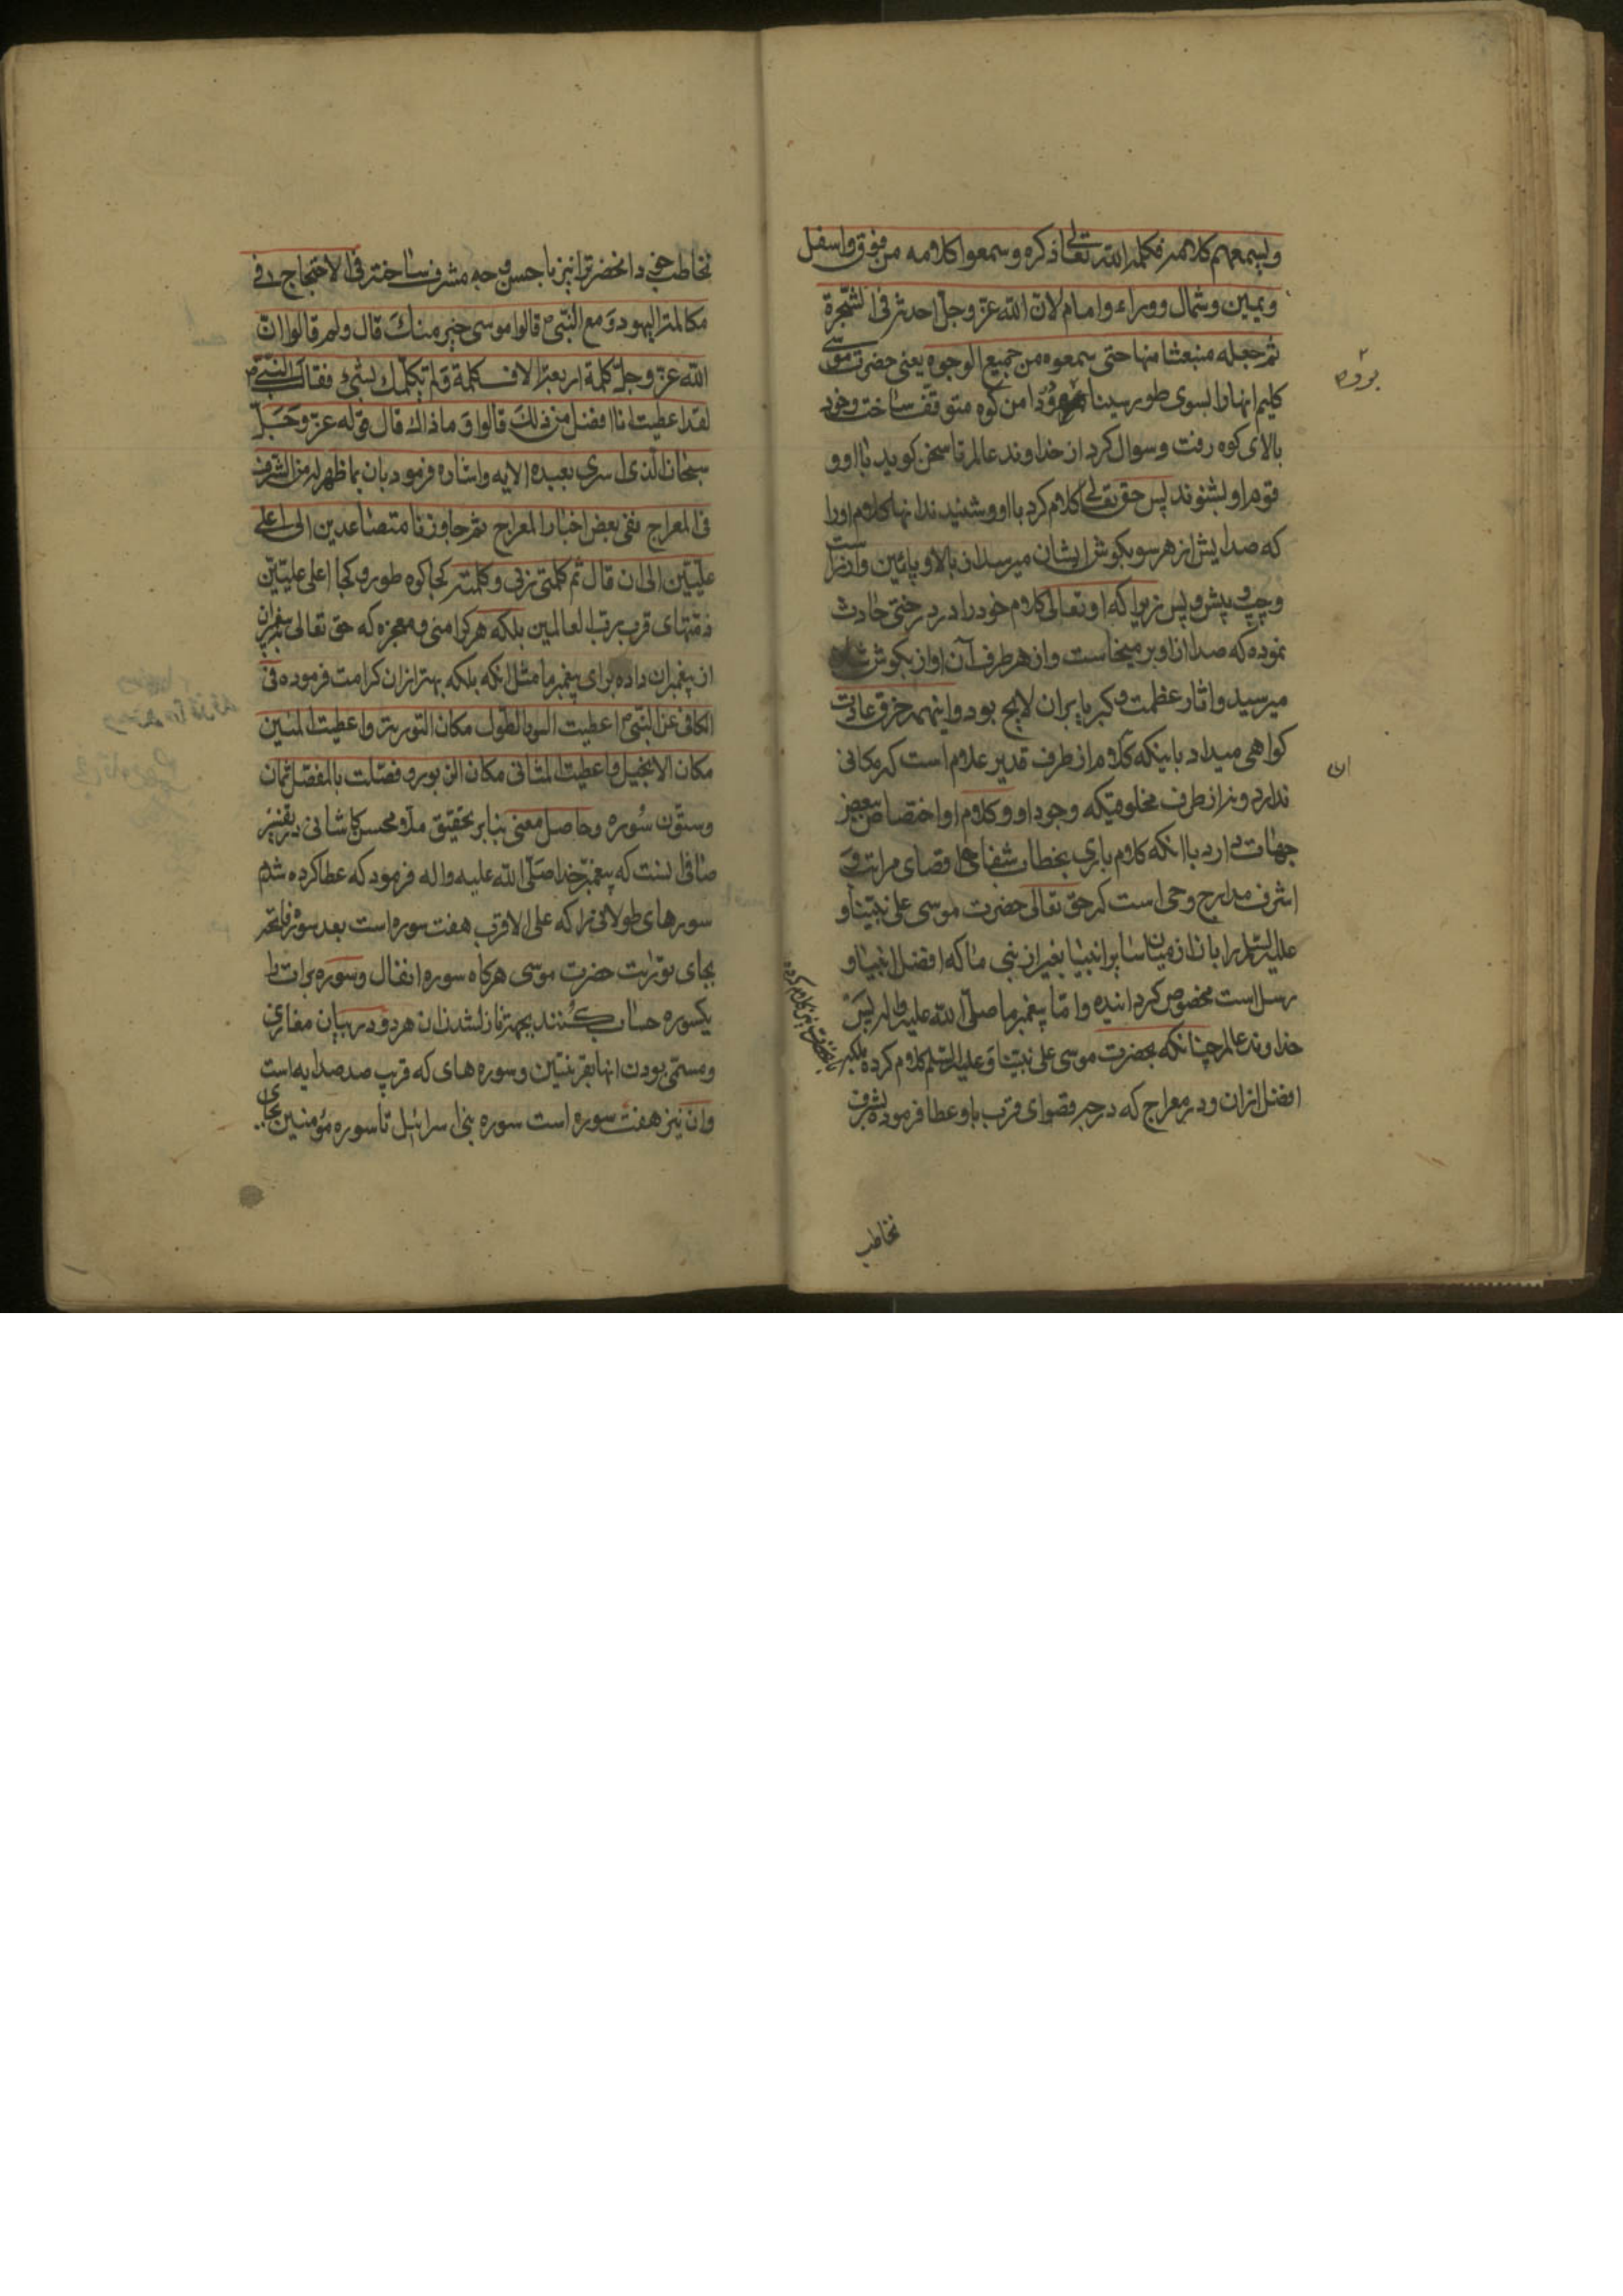 ولیسمعهم کلامه فکلمه الله تعالی ذکره وسمعوا کلامه من فوق واسفل
ویمین وشمال ووراء وامام لان الله عز وجل احدثه فی الشجرة
ثم جعله منبعثا منها حتی سمعوه من جمیع الوجوه یعنی حضرت موسی
کلیم انها را بسوی طور سینا برده در دامن کوه متوقف ساخت وخود
بالای کوه رفت وسوال کرد از خداوند عالم تا سخن کوید با او و
قوم او بشنوند پس حق تعالی کلام کرد با او وشنیدند انها کلام او را
که صدایش از هر سو بکوش ایشان میرسد از بالا و پائین و از راست
و چپ و پیش و پس زیرا که او تعالی کلام خود را در درختی حادث
نموده که صدا از او بر میخاست و از هر طرف آن اواز بکوش
میرسید واثار عظمت و کبریا بران لایح بود و اینهمه خرق عادت
کواهی میداد باینکه کلام از طرف قدیر علام است که مکانی
ندارد و نه از طرف مخلوقیکه وجود او و کلام او اختصاص ببعض
جهات دارد با انکه کلام باری بخطاب شفاهی اقصای مراتب و
اشرف مدارج وحی است که حق تعالی حضرت موسی علی نبینا و
علیه السلم را بان از میان سایر انبیا بغیر از نبی ما که افضل انبیا و
رسل است مخصوص کردانیده واما پیغمبر ما صلی الله علیه واله پس
خداوند عالم چنانکه بحضرت موسی علی نبینا وعلیه السلم کلام کرده بلکه
افضل ازان ودر معراج که درجه قصوای قرب باو عطا فرموده بشرف
بوده
ان
تخاطب
تخاطب خود انحضرترا نیز باحسن وجه مشرف ساخته فی الاحتجاج فی
مکالمة الیهود مع النبی قالوا موسی خیر منك قال ولم قالوا ان
الله عز وجل کلمه اربعة الاف کلمة ولم یکلمك بشیء فقال النبی
لقد اعطیت انا افضل من ذلك قالوا وما ذاك قال قوله عز وجل
سبحان الذی اسری بعبده الایه واشاره فرمود بان بما ظهر له من الشرف
فی المعراج ففی بعض اخبار المعراج ثم جاوزنا متصاعدین الی اعلی
علیین الی ان قال ثم کلمنی ربی وکلمته کجا کوه طور و کجا اعلی علیین
ومنتهای قرب رب العالمین بلکه هر کرامتی ومعجزه که حق تعالی به پیغمبران
از پیغمبران داده برای پیغمبر ما مثل انکه بلکه بهتر ازان کرامت فرموده فی
الکافی عن النبی اعطیت السور الطول مکان التوریة واعطیت المئین
مکان الانجیل واعطیت المثانی مکان الزبور وفضلت بالمفصل ثمان
وستون سوره وحاصل معنی بنابر تحقیق ملا محسن کاشانی در تفسیر
صافی اینست که پیغمبر خدا صلی الله علیه واله فرمود که عطا کرده شدم
سورهای طولانی را که علی الاقرب هفت سوره است بعد سوره فاتحه
بجای توریت حضرت موسی هرکاه سوره انفال وسوره برات را
یکسوره حساب کنند بجهة نازلشدن ان هر دو در بیان مغازی
ومسمی بودن انها بقرینتین وسوره های که قریب صد صد ایه است
وان نیز هفت سوره است سوره بنی اسرائیل تا سوره مؤمنین بجای